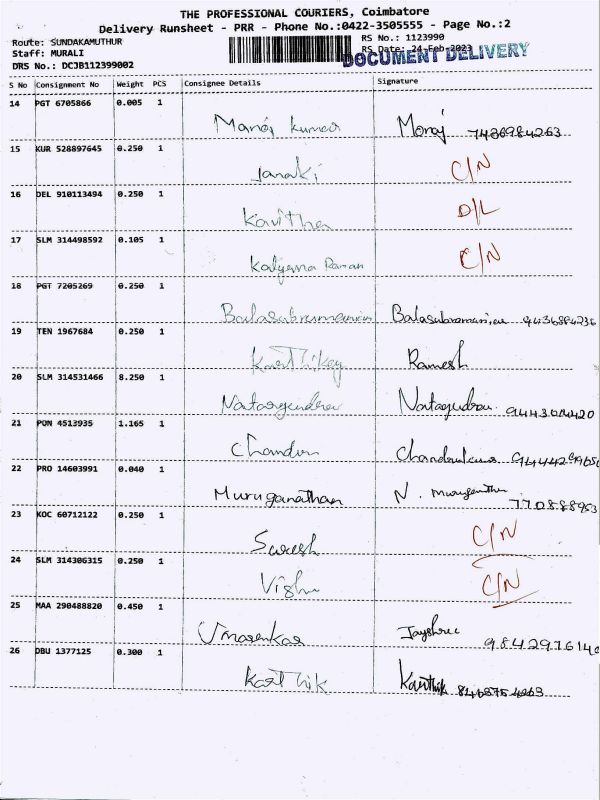 THE PROFESSIONAL COURIERS, Coimbatore
Delivery Runsheet - PRR - Phone No.:0422-3505555 - Page No.:2
Route: SUNDAKAMUTHUR
RS No.: 1123990
Staff: MURALI
RS Date: 24-Feb-2023
DOCUMENT DELIVERY
DRS No.: DCJB112399002
S No Consignment No Weight PCS Consignee Details Signature
14 PGT 6705866 0.005 1
Manoj Kumar Monaj
15 KUR 528897645 0.250 1
Janaki C/N
16 DEL 910113494 0.250 1
Kavitha D/L
17 SLM 314498592 0.105 1
Kalyana Raman C/N
18 PGT 7205269 0.250 1
Balasubramanian Balasubramanian
19 TEN 1967684 0.250 1
Karthikey Ramesh
20 SLM 314531466 8.250 1
21 PON 4513935 1.165 1
22 PRO 14603991 0.040 1
Muruganathan N.
23 KOC 60712122 0.250 1
Suresh C/N
24 SLM 314306315 0.250 1
Vishnu C/N
25 MAA 290488820 0.450 1
Jayshree 9842976140
26 DBU 1377125 0.300 1
Karthik Karthik